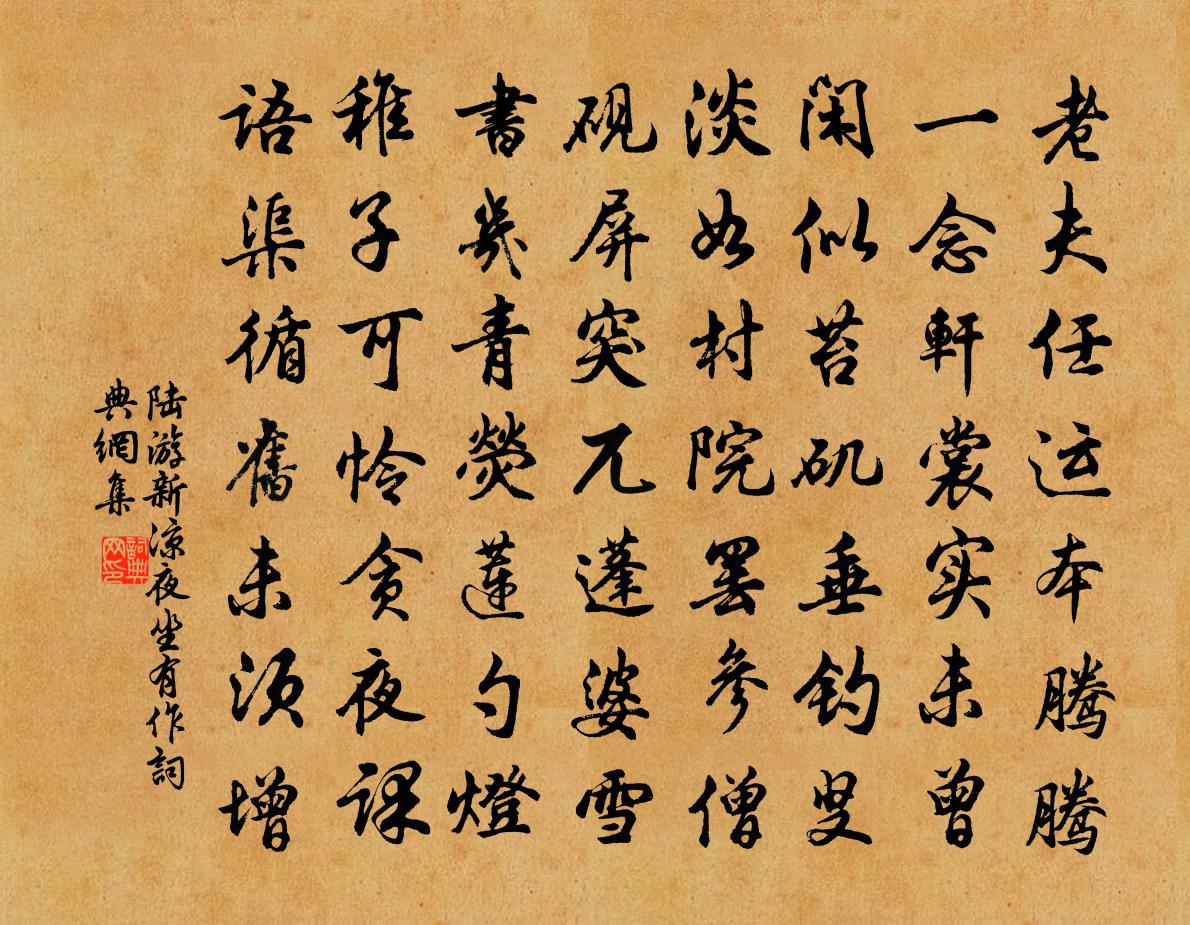 老夫任运本腾腾
一念軒裳实未曾
闲似苔矶垂钓叟
淡如村院罢参僧
砚屏突兀蓬婆雪
書几青荧莲勺燈
稚子可怜贪夜课
语渠循舊未须增
陆游新凉夜坐有作詞
典網集
詞典
网印